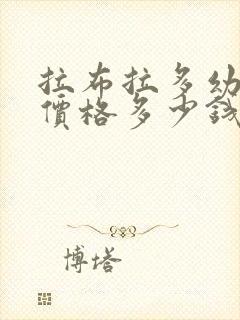 拉布拉多幼
價格多少錢
博塔